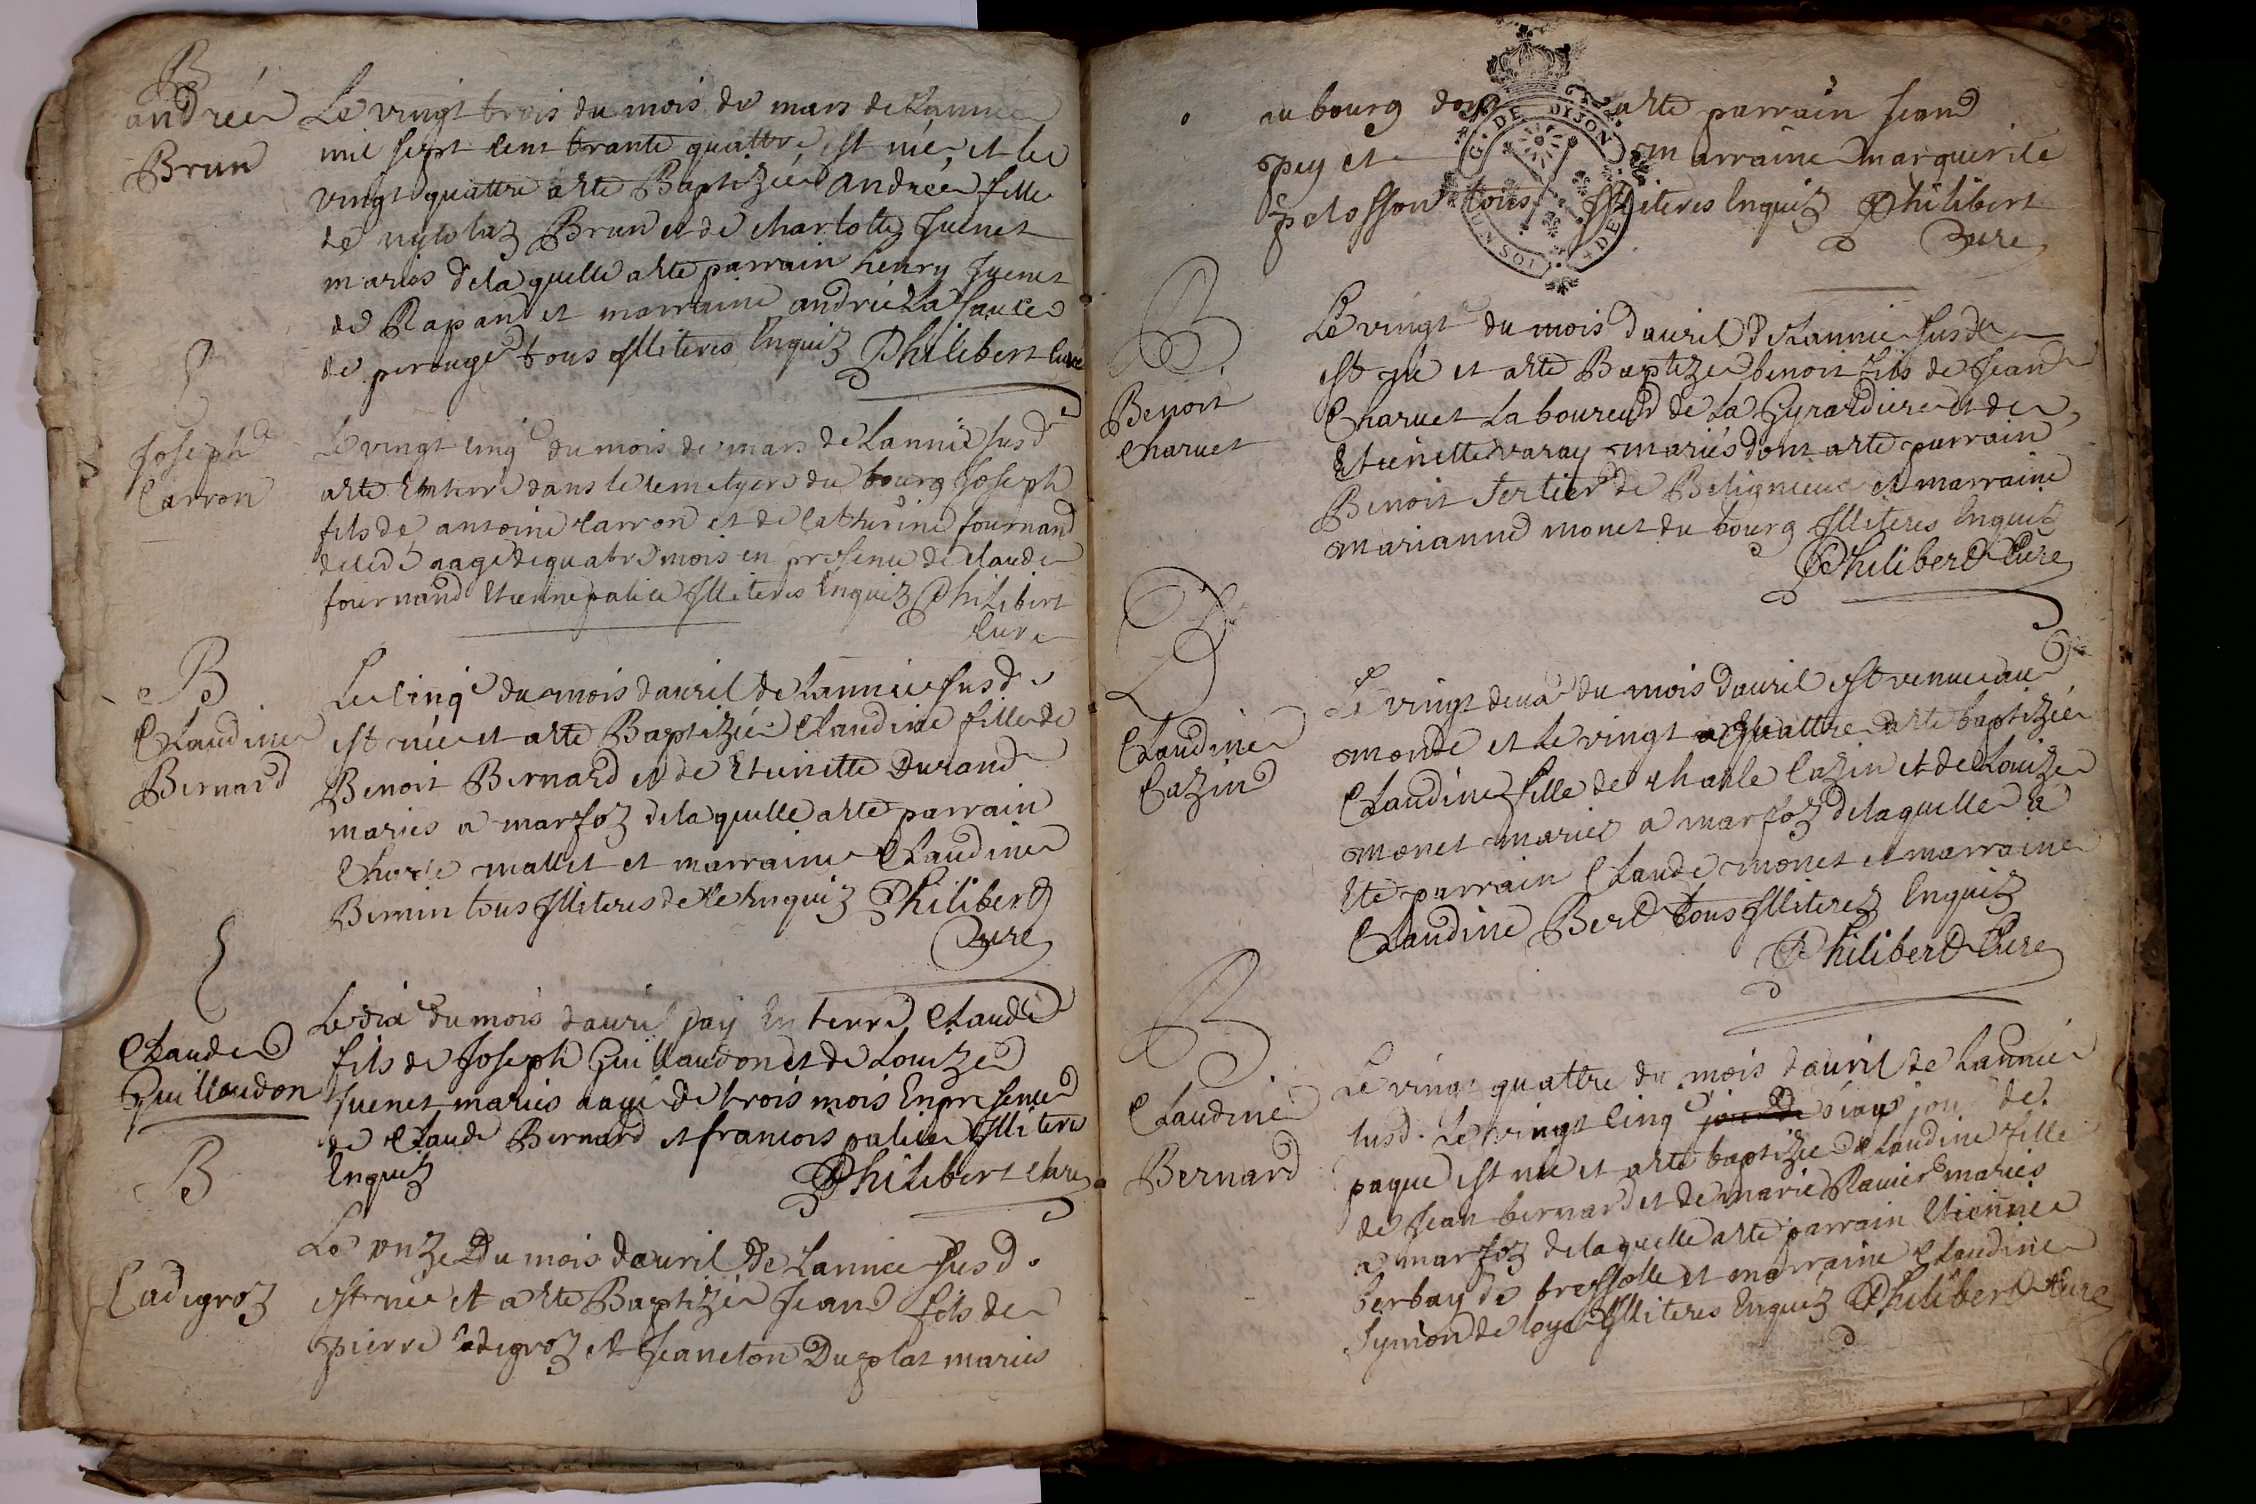 B
andrée
Brun
Le vingt trois du mois de mars de Lannee
mil sept cent trante quattre est née et le
vingt quattre aete Baptizée andrée fille
de nycolaz Brun et de charlotte Juenet
mariés dela quelle aete parrain henry Juenet
de Rapan et marraine andrie La sauce
de perouge tous illiteres Enquiz Philibert Cure
Joseph
Carron
Le vingt cinq du mois de mars de Lannee susd
aete Enterré dans le cemetyere du bourg Joseph
fils de antoine carron et de Catherine fournand
decedé aagé de quatre mois en presence de claude
fournand Etienne palice Illiteres Enquiz Philibert
Cure
B
Claudine
Bernard
Le cinq du mois dauril de Lannee susd
est née et aete Baptizée Claudine fille de
Benoit Bernard et de Etienette Durand
maries a marfoz dela quelle aete parrain
mallet et marraine Claudine
Bernin tous Illiteres de ce Enquiz Philiberd
Cure
Claude
Guillaudon
Le dix du mois dauril jay Enterré Claude
fils de Joseph Guillaudon et de Louize
Juenet maries aagé de trois mois En presence
de Claude Bernard et francois palice Illitere
Enquez Philibert Cure
B
Cadigroz
Le onze Du mois dauril de Lannee susd.
est née et aete Baptizée Jean fils de
pierre Cadegroz et Jeaneton Duplat maries
au bourg dont aete parrain Jean
pey et marraine Marguerite
pelosson tous Illiteres Enquiz Philibert
Cure
G. DE DIJON
B
Benoit
Charuet
Le vingt du mois dauril de Lannee susd
est né et aete Baptize benoit fils de Jean
Charuet Laboureur de La Gyrardiere et de
Etienette varay mariés dont aete parrain
Benoit tertier de Beligneux et marraine
marianne monet du bourg Illiteres Enquez
Philiberd Cure
B
Claudine
Cazin
Le vingt deux du mois dauril est venue au
monde et le vingt quattre aete baptizée
Claudine fille de charle Cazin et de Louize
monet mariez a marfoz delaquelle a
Ete parrain Claude monet et marraine
Claudine Berd tous Illiterez Enquiz
Philiberd Cure
B
Claudine
Bernard
Le vingt quattre du mois dauril de Lannée
susd. Le vingt cinq jour de
paque est née et aete baptizée Claudine fille
de Jean bernard et de marie Rauier maries
a marfoz de laquelle aete parrain Etienne
berbay de bressolle et marraine Claudine
Symon de loye Illiteres Enquez Philiberd Cure